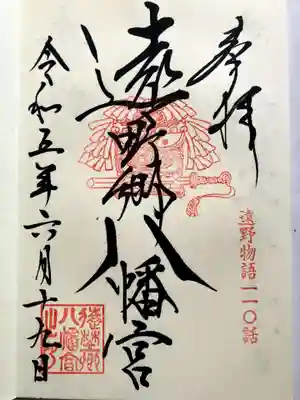 奉拝
遠野物語一一〇話
遠野郷八幡宮
令和五年六月十九日